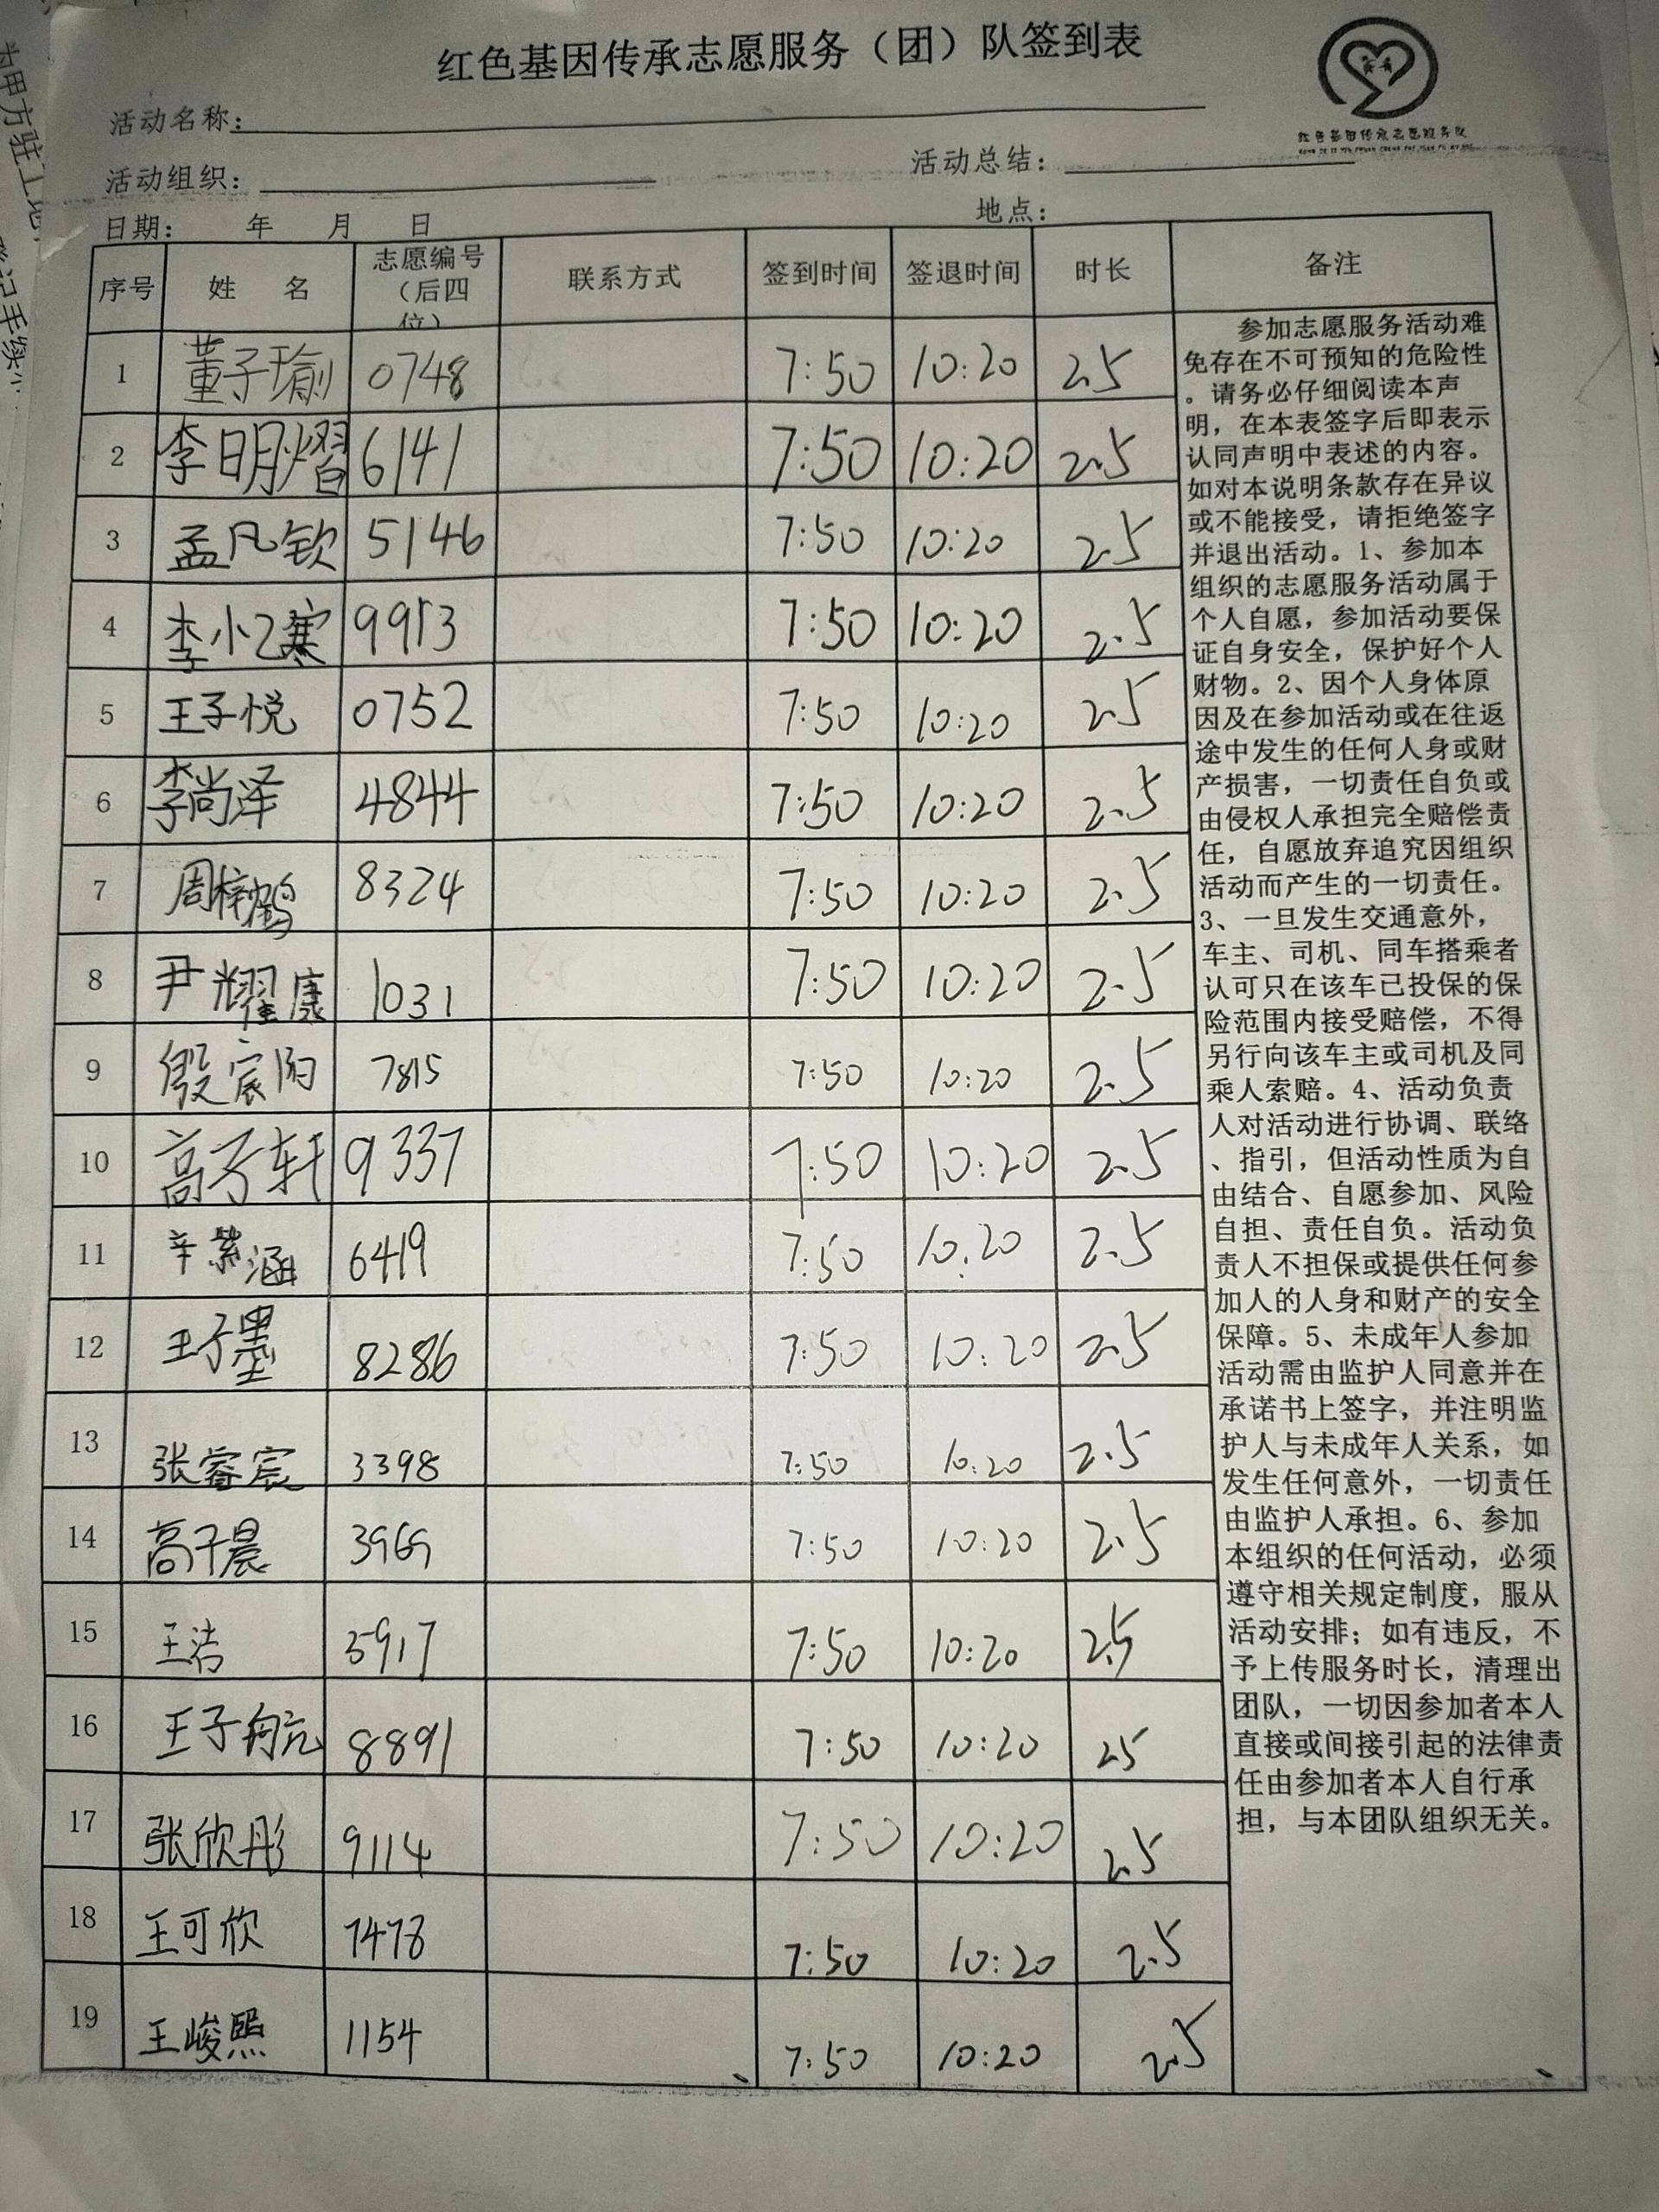 红色基因传承志愿服务（团）队签到表
红色基因传承志愿服务队
活动名称：
活动组织：
活动总结：
日期： 年 月 日
地点：
序号 姓 名 志愿编号（后四位） 联系方式 签到时间 签退时间 时长 备注
1 董子瑜 0748 7:50 10:20 2.5
2 李明熠 6141 7:50 10:20 2.5
3 孟凡钦 5146 7:50 10:20 2.5
4 李小乙寒 9913 7:50 10:20 2.5
5 王子悦 0752 7:50 10:20 2.5
6 李尚泽 4844 7:50 10:20 2.5
7 周梓鹤 8324 7:50 10:20 2.5
8 尹耀康 1031 7:50 10:20 2.5
9 殷宸 7815 7:50 10:20 2.5
10 高子轩 9337 7:50 10:20 2.5
11 辛紫涵 6419 7:50 10:20 2.5
12 王子墨 8286 7:50 10:20 2.5
13 张睿宸 3398 7:50 10:20 2.5
14 高子晨 3969 7:50 10:20 2.5
15 王洁 3917 7:50 10:20 2.5
16 王子航 8891 7:50 10:20 25
17 张欣彤 9114 7:50 10:20 2.5
18 王可欣 7478 7:50 10:20 2.5
19 王峻熙 1154 7:50 10:20 2.5
参加志愿服务活动难
免存在不可预知的危险性
。请务必仔细阅读本声
明，在本表签字后即表示
认同声明中表述的内容。
如对本说明条款存在异议
或不能接受，请拒绝签字
并退出活动。1、参加本
组织的志愿服务活动属于
个人自愿，参加活动要保
证自身安全，保护好个人
财物。2、因个人身体原
因及在参加活动或在往返
途中发生的任何人身或财
产损害，一切责任自负或
由侵权人承担完全赔偿责
任，自愿放弃追究因组织
活动而产生的一切责任。
3、一旦发生交通意外，
车主、司机、同车搭乘者
认可只在该车已投保的保
险范围内接受赔偿，不得
另行向该车主或司机及同
乘人索赔。4、活动负责
人对活动进行协调、联络
、指引，但活动性质为自
由结合、自愿参加、风险
自担、责任自负。活动负
责人不担保或提供任何参
加人的人身和财产的安全
保障。5、未成年人参加
活动需由监护人同意并在
承诺书上签字，并注明监
护人与未成年人关系，如
发生任何意外，一切责任
由监护人承担。6、参加
本组织的任何活动，必须
遵守相关规定制度，服从
活动安排；如有违反，不
予上传服务时长，清理出
团队，一切因参加者本人
直接或间接引起的法律责
任由参加者本人自行承
担，与本团队组织无关。